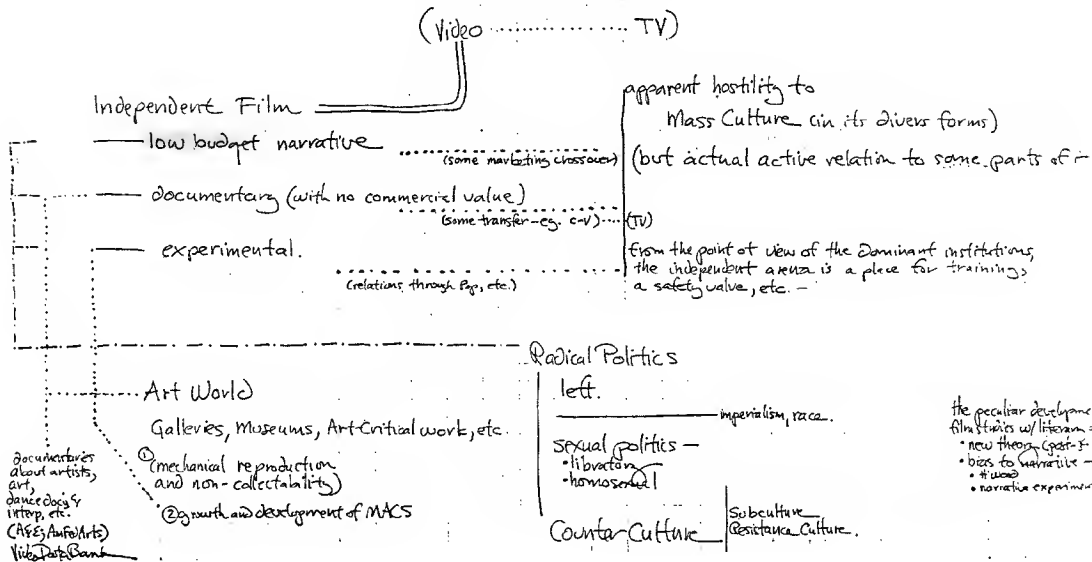 (Video ............ TV)
Independent Film
low budget narrative
(some marketing crossover)
documentary (with no commercial value)
(some transfer-eg. c-V)
(TV)
experimental.
(relations through Pop, etc.)
apparent hostility to
Mass Culture (in its divers forms)
(but actual active relation to some parts of
from the point of view of the Dominant institutions,
the independent arena is a place for training,
a safety valve, etc. –
Art World
Galleries, Museums, Art-Critical work, etc.
① (mechanical reproduction
and non-collectability)
② growth and development of MACS
documentaries
about artists,
art,
dance docs &
interp, etc.
(A&E;
Video Data Bank
Radical Politics
left.
imperialism, race.
sexual politics –
• libratory
• homosexual
Counter Culture
Subculture
Resistance Culture.
the peculiar developme
film studies w/ literary
• new theory (post-
• bias to narrative –
• narrative experimen